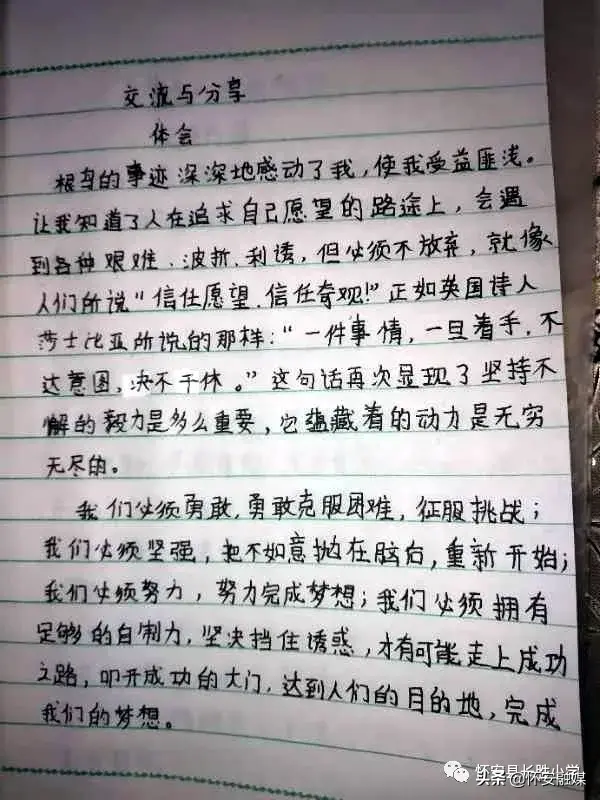 交流与分享
体会
根鸟的事迹深深地感动了我,使我受益匪浅。
让我知道了人在追求自己愿望的路途上,会遇
到各种艰难、波折、利诱,但必须不放弃,就像
人们所说“信任愿望、信任奇观!”正如英国诗人
莎士比亚所说的那样:“一件事情,一旦着手,不
达意图,决不干休。”这句话再次显现了坚持不
懈的毅力是多么重要,它蕴藏着的动力是无穷
无尽的。
我们必须勇敢,勇敢克服困难,征服挑战;
我们必须坚强,把不如意抛在脑后,重新开始;
我们必须努力,努力完成梦想;我们必须拥有
足够的自制力,坚决挡住诱惑,才有可能走上成功
之路,叩开成功的大门,达到人们的目的地,完成
我们的梦想。
怀安县长胜小学
头条@怀安融媒